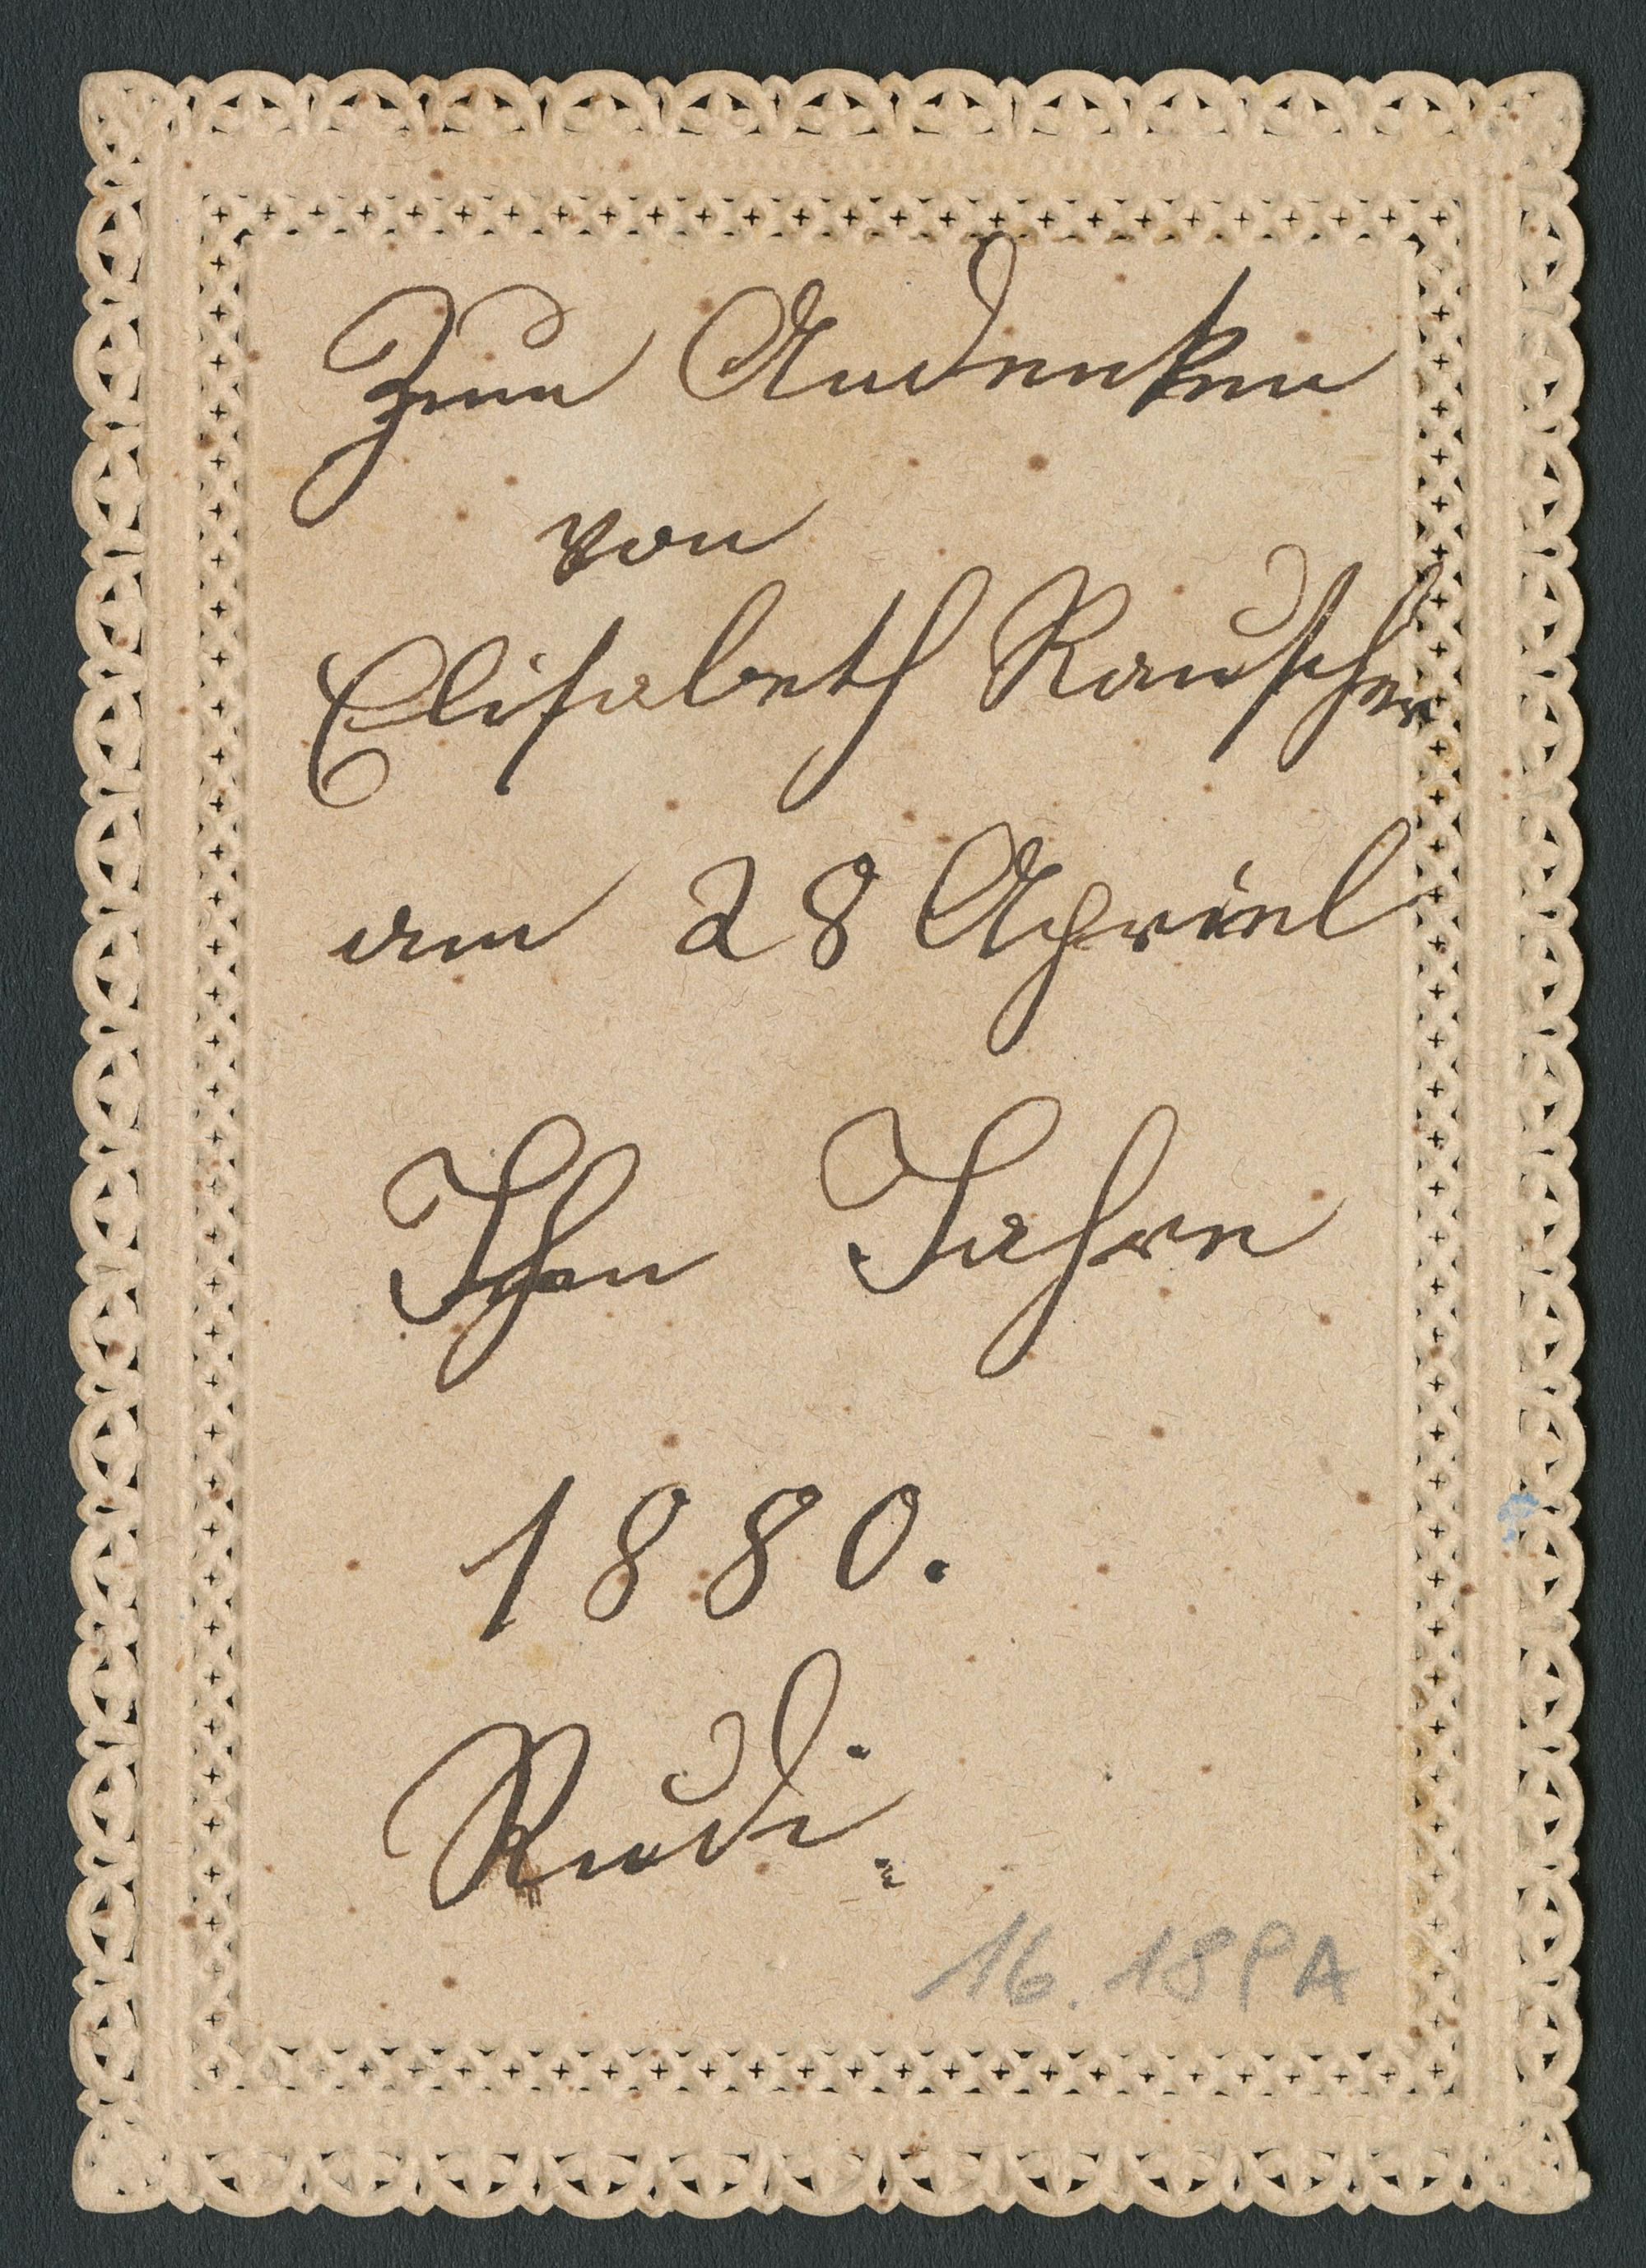 Zum Andenken
von
Elisabeth Rauscher
am 28 Apriel
Jahre
1880.
Rudi.
16.189A